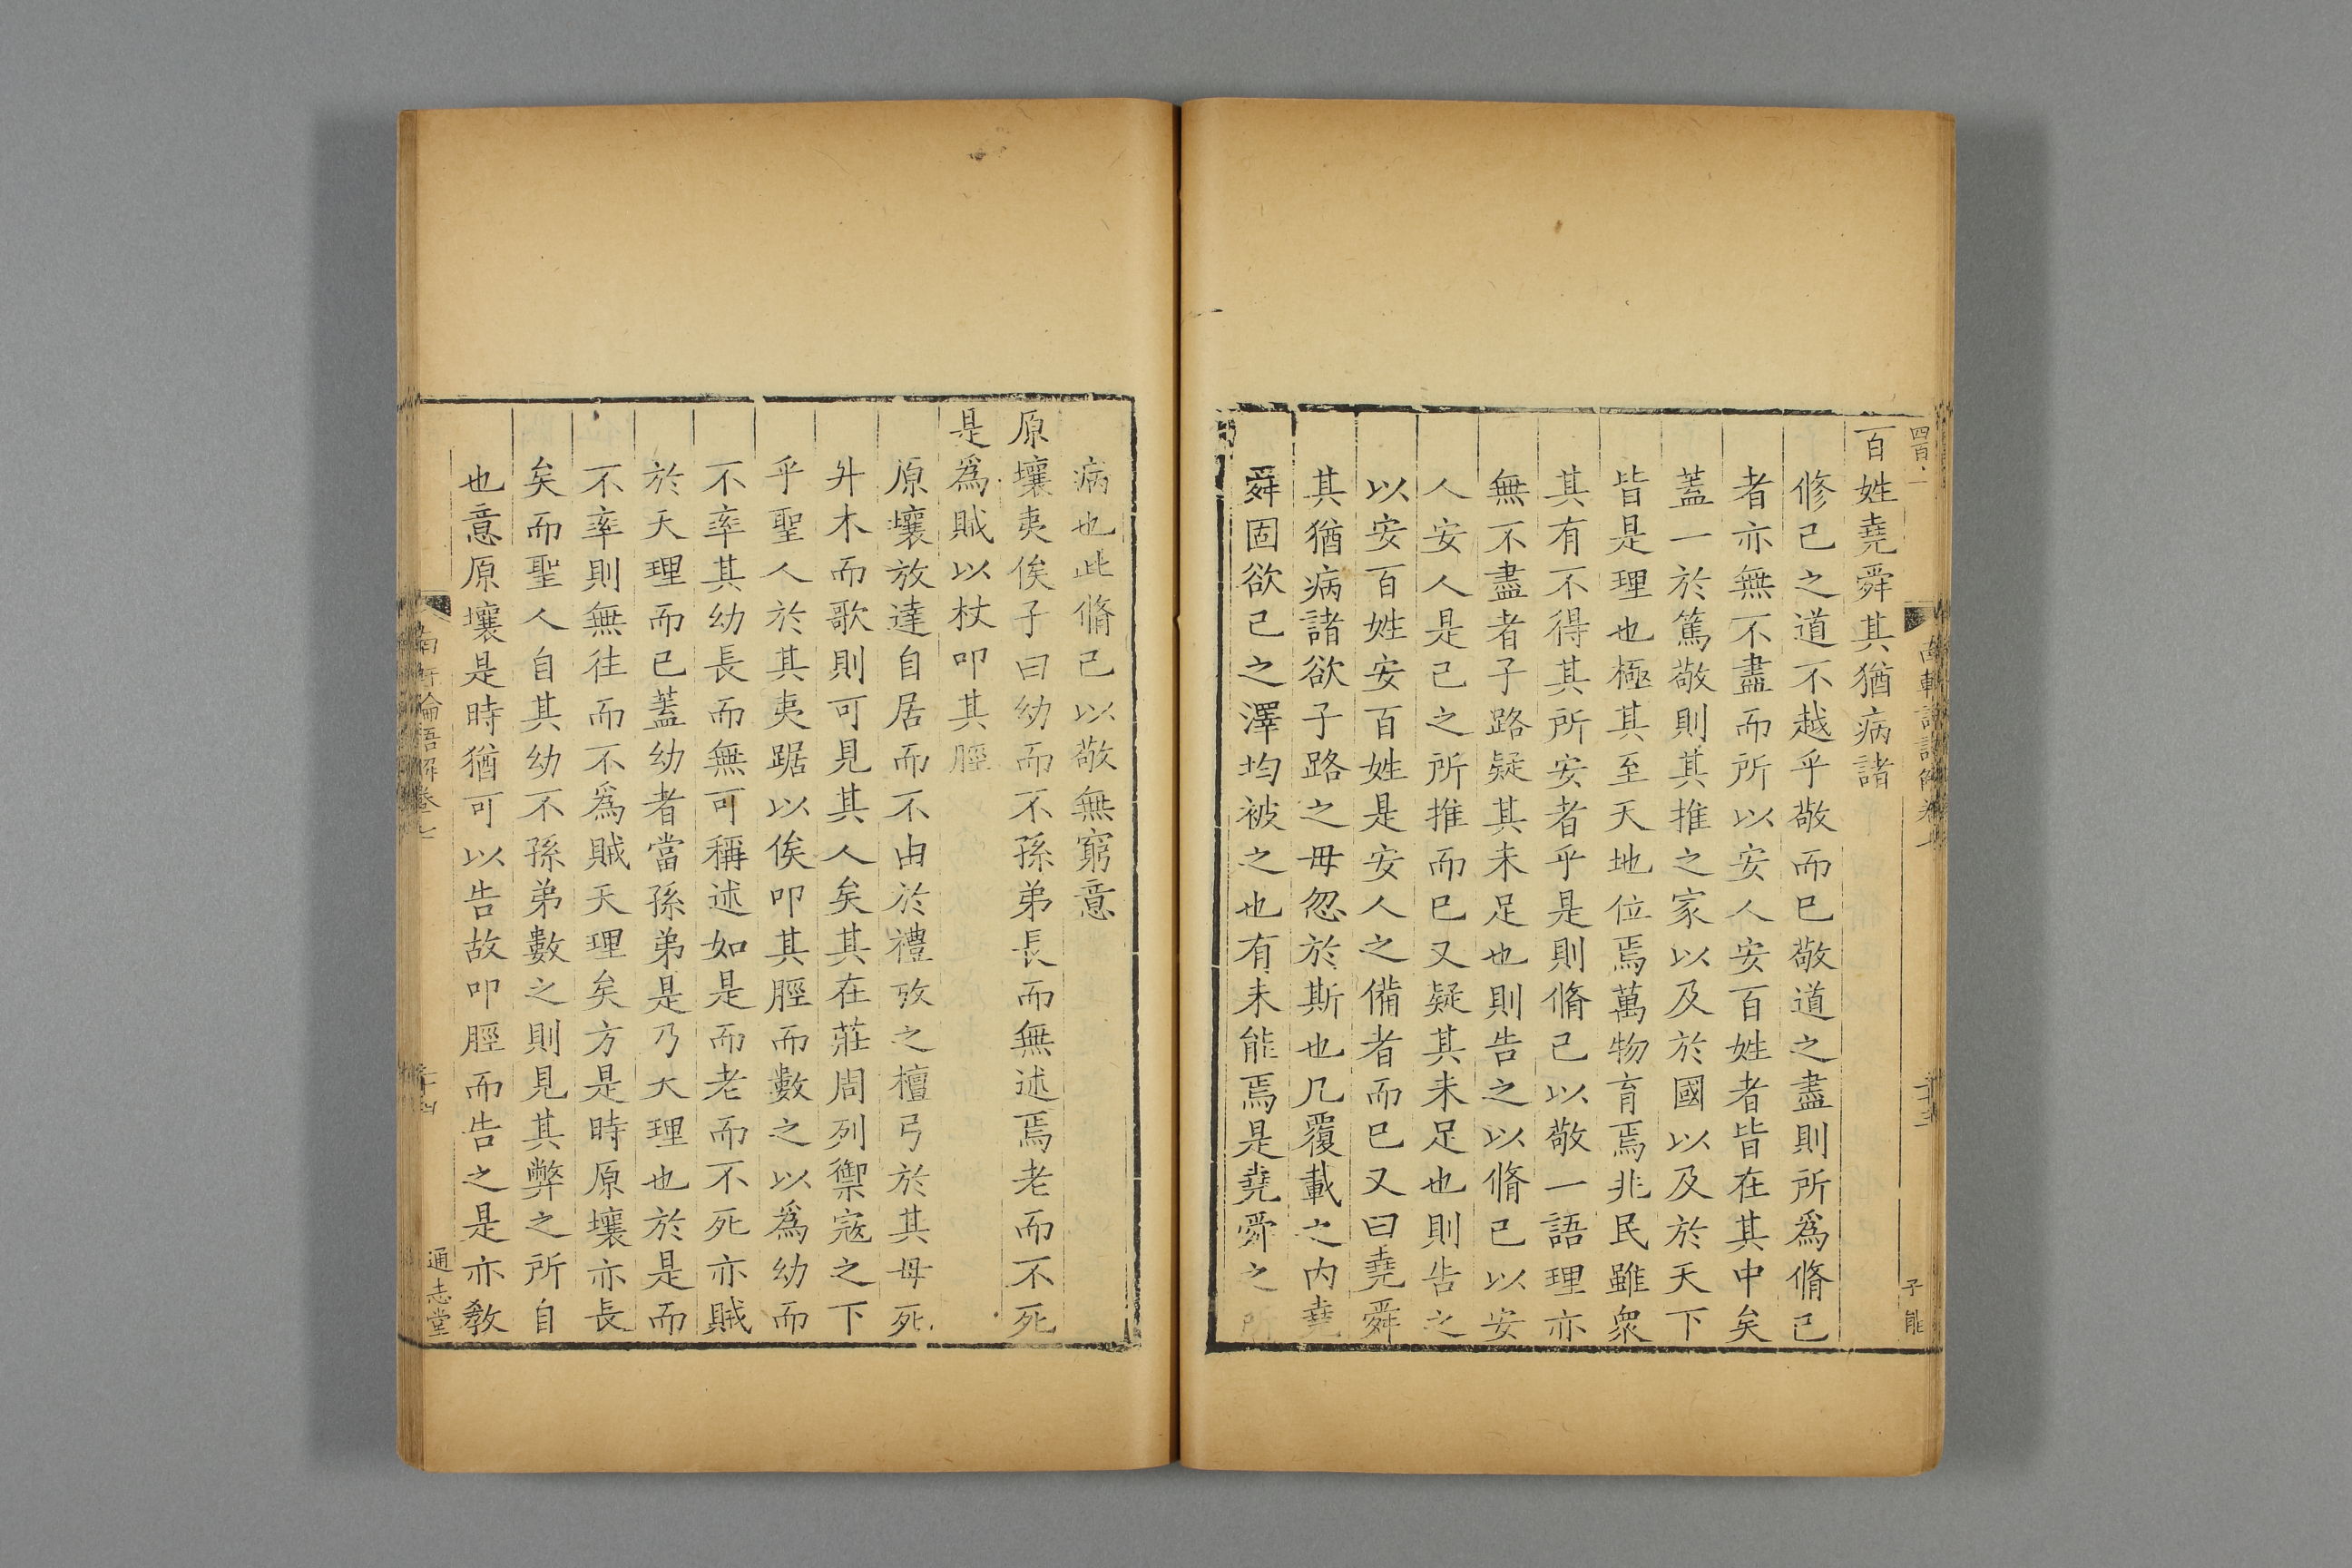 百姓堯舜其猶病諸
修己之道不越乎敬而已敬道之盡則所爲脩己
者亦無不盡而所以安人安百姓者皆在其中矣
蓋一於篤敬則其推之家以及於國以及於天下
皆是理也極其至天地位焉萬物育焉兆民雖衆
其有不得其所安者乎是則脩己以敬一語理亦
無不盡者子路疑其未足也則告之以脩己以安
人安人是己之所推而已又疑其未足也則告之
以安百姓安百姓是安人之備者而已又曰堯舜
其猶病諸欲子路之毋忽於斯也凡覆載之内堯
舜固欲己之澤均被之也有未能焉是堯舜之所
子能
病也此脩己以敬無窮意
原壤夷俟子曰幼而不孫弟長而無述焉老而不死
是爲賊以杖叩其脛
原壤放達自居而不由於禮攷之檀弓於其母死
升木而歌則可見其人矣其在莊周列禦寇之下
乎聖人於其夷踞以俟叩其脛而數之以爲幼而
不率其幼長而無可稱述如是而老而不死亦賊
於天理而已蓋幼者當孫弟是乃天理也於是而
不率則無往而不爲賊天理矣方是時原壤亦長
矣而聖人自其幼不孫弟數之則見其弊之所自
也意原壤是時猶可以告故叩脛而告之是亦教
南軒論語解卷七
通志堂